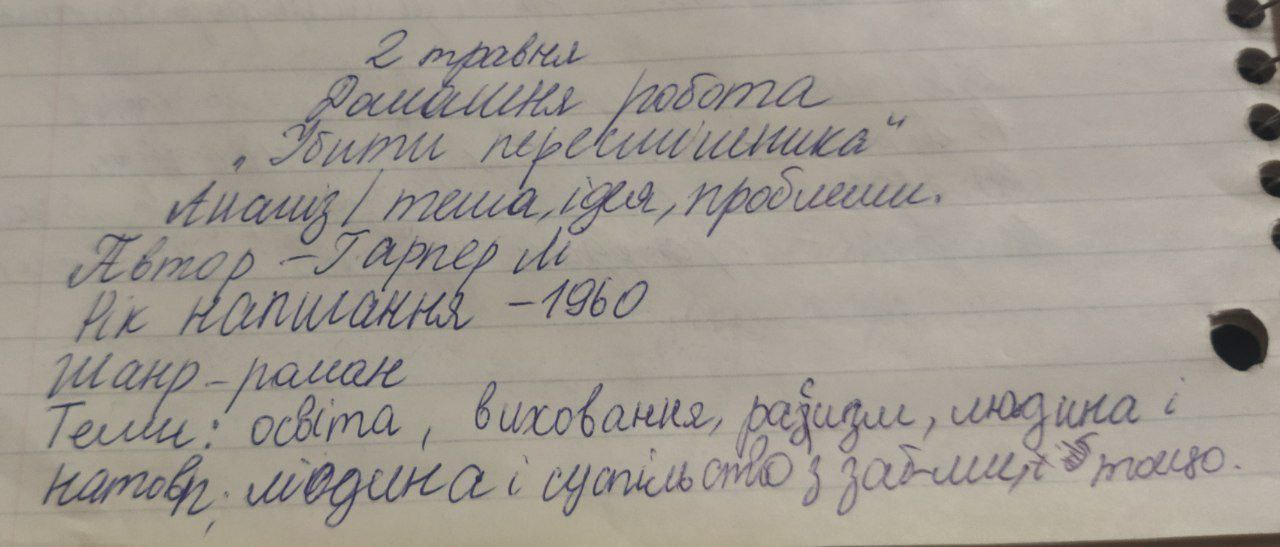 2 травня
Домашня робота
„Убити пересмішника"
Аналіз / тема, ідея, проблеми.
Автор – Гарпер Лі
Рік написання – 1960
Жанр – роман
Теми: освіта, виховання, расизм, людина і
натовп; людина і суспільство з тощо.